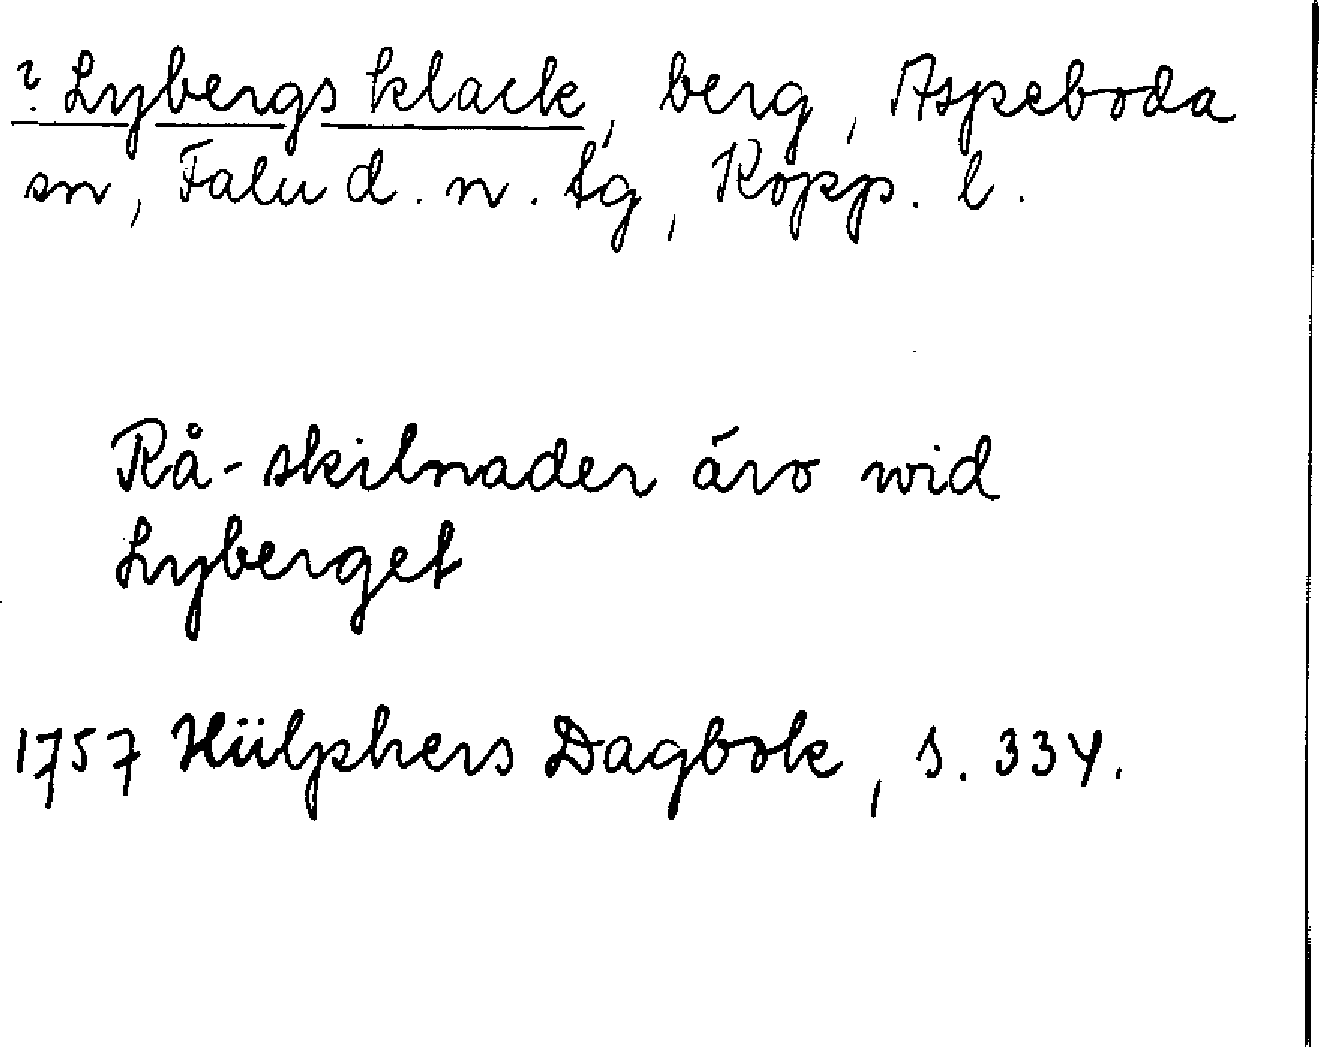 ? Lybergs klack, berg, Aspeboda
sn, Falu d. n. tg, Kopp. l.
Rå-skilnader äro wid
Lyberget
1757 Hülphers Dagbok, s. 334.